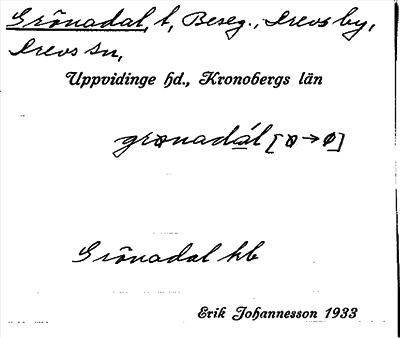 Grönadal, t, Beseg., Drevs by,
Drevs sn,
Uppvidinge hd., Kronobergs län
grønadál [ø→ø]
Grönadal hb
Erik Johannesson 1933